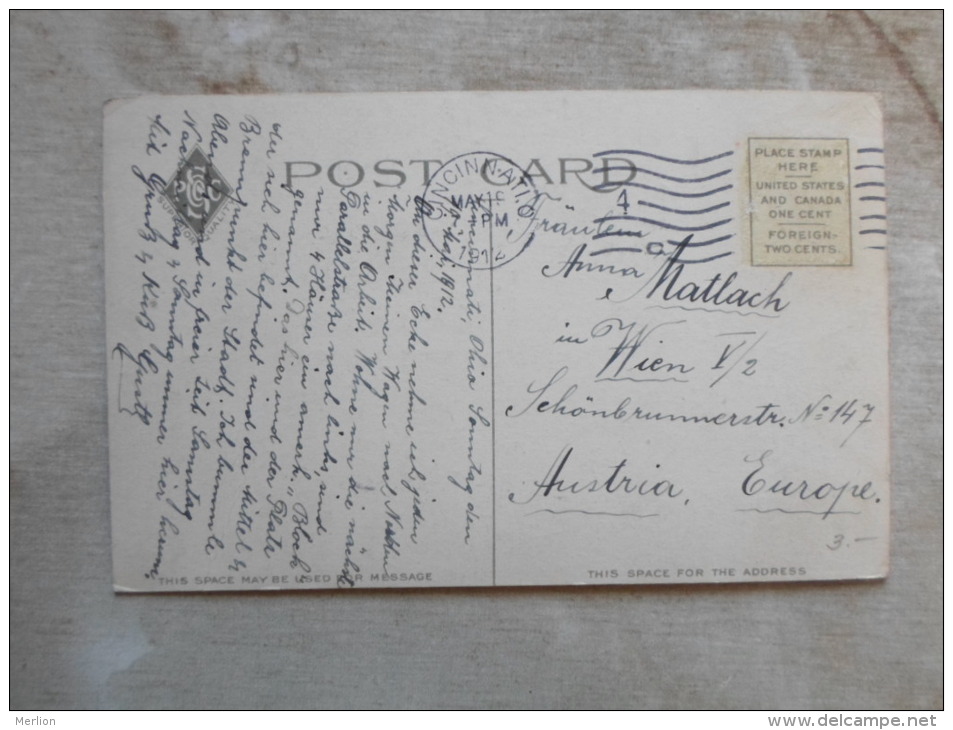 POST CARD
CINCINNATI, O.
MAY 19
PM
1912
4
PLACE STAMP
HERE
UNITED STATES
AND CANADA
ONE CENT
FOREIGN-
TWO CENTS.
Cincinnati, Ohio Sonntag den
Mai, 1912.
An diese Ecke nehme ich jeden
Morgen meinen Wagen nach Norden
in die Arbeit. Wohne nur die nächste
Parallelstraße nach links, sind
nur 4 Häuser ein amerk. "Block"
genannt. Das hier und der Platz
der sich hier befindet sind der Mittel &
Brennpunkt der Stadt. Ich bummle
Abend in freier Zeit Samstag
Nachmittag & Sonntag immer hier herum.
Mit Gruß & Kuß Gustl
SUPERIOR QUALITY
Fräulein
Anna Matlach
in Wien V/2
Schönbrunnerstr. No 147
Austria, Europe.
3.-
THIS SPACE MAY BE USED FOR MESSAGE
THIS SPACE FOR THE ADDRESS
Merlion
www.delcampe.net